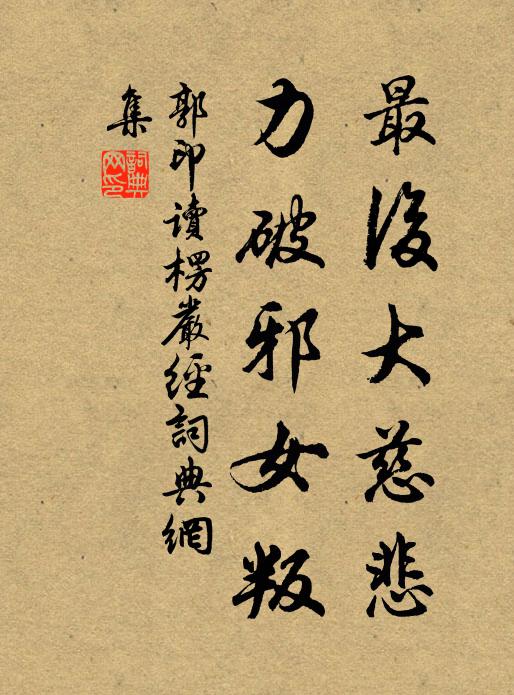 最後大慈悲
力破邪女叛
郭印讀楞嚴經詞典網
集
詞典
网印